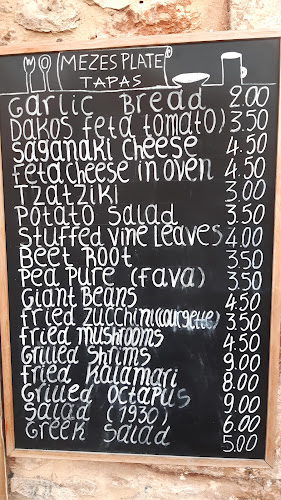 (MEZES PLATE)
TAPAS
Garlic Bread 2.00
Dakos feta tomato) 3.50
Saganaki Cheese 4.50
feta cheese in oven 4.50
Tzatziki 3.00
Potato Salad 3.50
Stuffed vine Leaves 4.00
Beet Root 3.50
Pea Pure (fava) 3.50
Giant Beans 4.50
fried zucchini (courgette) 3.50
fried mushrooms 4.50
Grilled Shrims 9.00
fried Kalamari 8.00
Grilled Octapus 9.00
Salad (1930) 6.00
Greek Salad 5.00